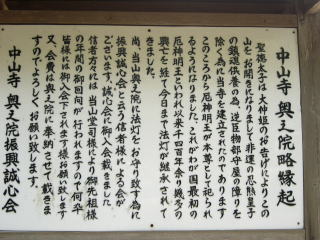 中山寺 奥之院略縁起
聖徳太子は大仲姫のお告げによりこの
山をお開きになりまして非運の忍熊皇子
の鎮魂供養の為、逆臣物部守屋障りを
除く為に当寺を建立されたのであります
このころから厄神明王が本尊として祀られ
るようになりました。これがわが国最初の
厄神明王といわれ以来千四百年余り幾多の
興亡を経て今日まで法灯が継承されて
きました。
尚、当山奥之院に法灯をお守り致す為に
振興誠心会と云う信者様による会が
ございます。誠心会に御入会戴きました
信者方々には当山堂司様より御先祖様
の年間の御回向が行われますので何卒
皆様には御入会下されます様お願い致します
又、会費は奥之院に奉納させて戴きま
すのでよろしくお願い致します。
中山寺 奥之院振興誠心会